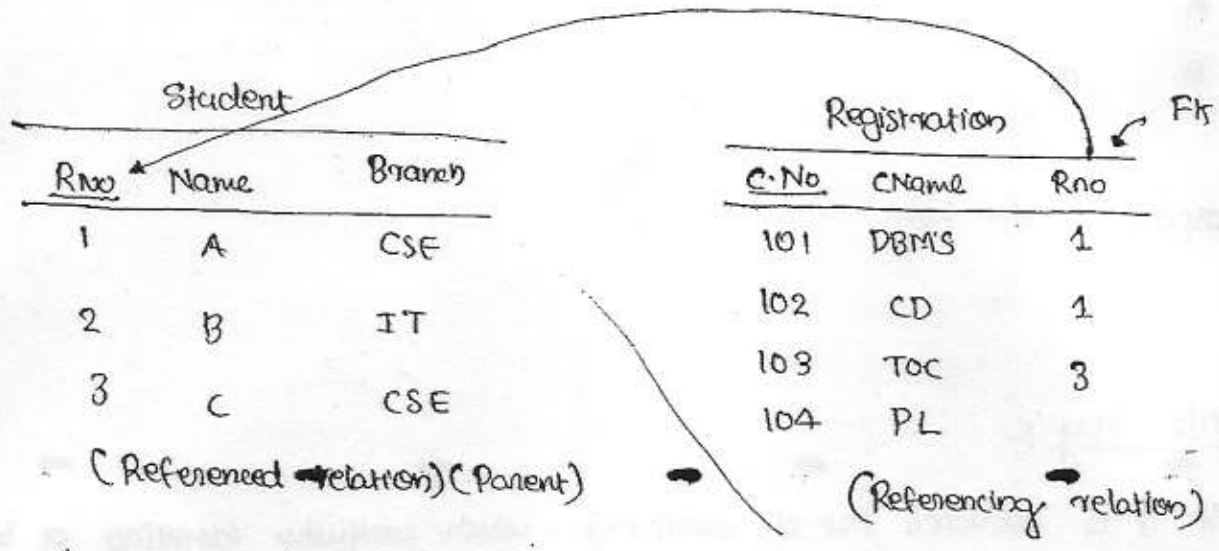 Student
Rno Name Branch
1 A CSE
2 B IT
3 C CSE
(Referenced relation) (Parent)
Registration FK
C.No CName Rno
101 DBMS 1
102 CD 1
103 TOC 3
104 PL
(Referencing relation)